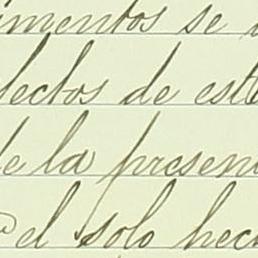 imentos se
fectos de este
de la presen
el solo hech